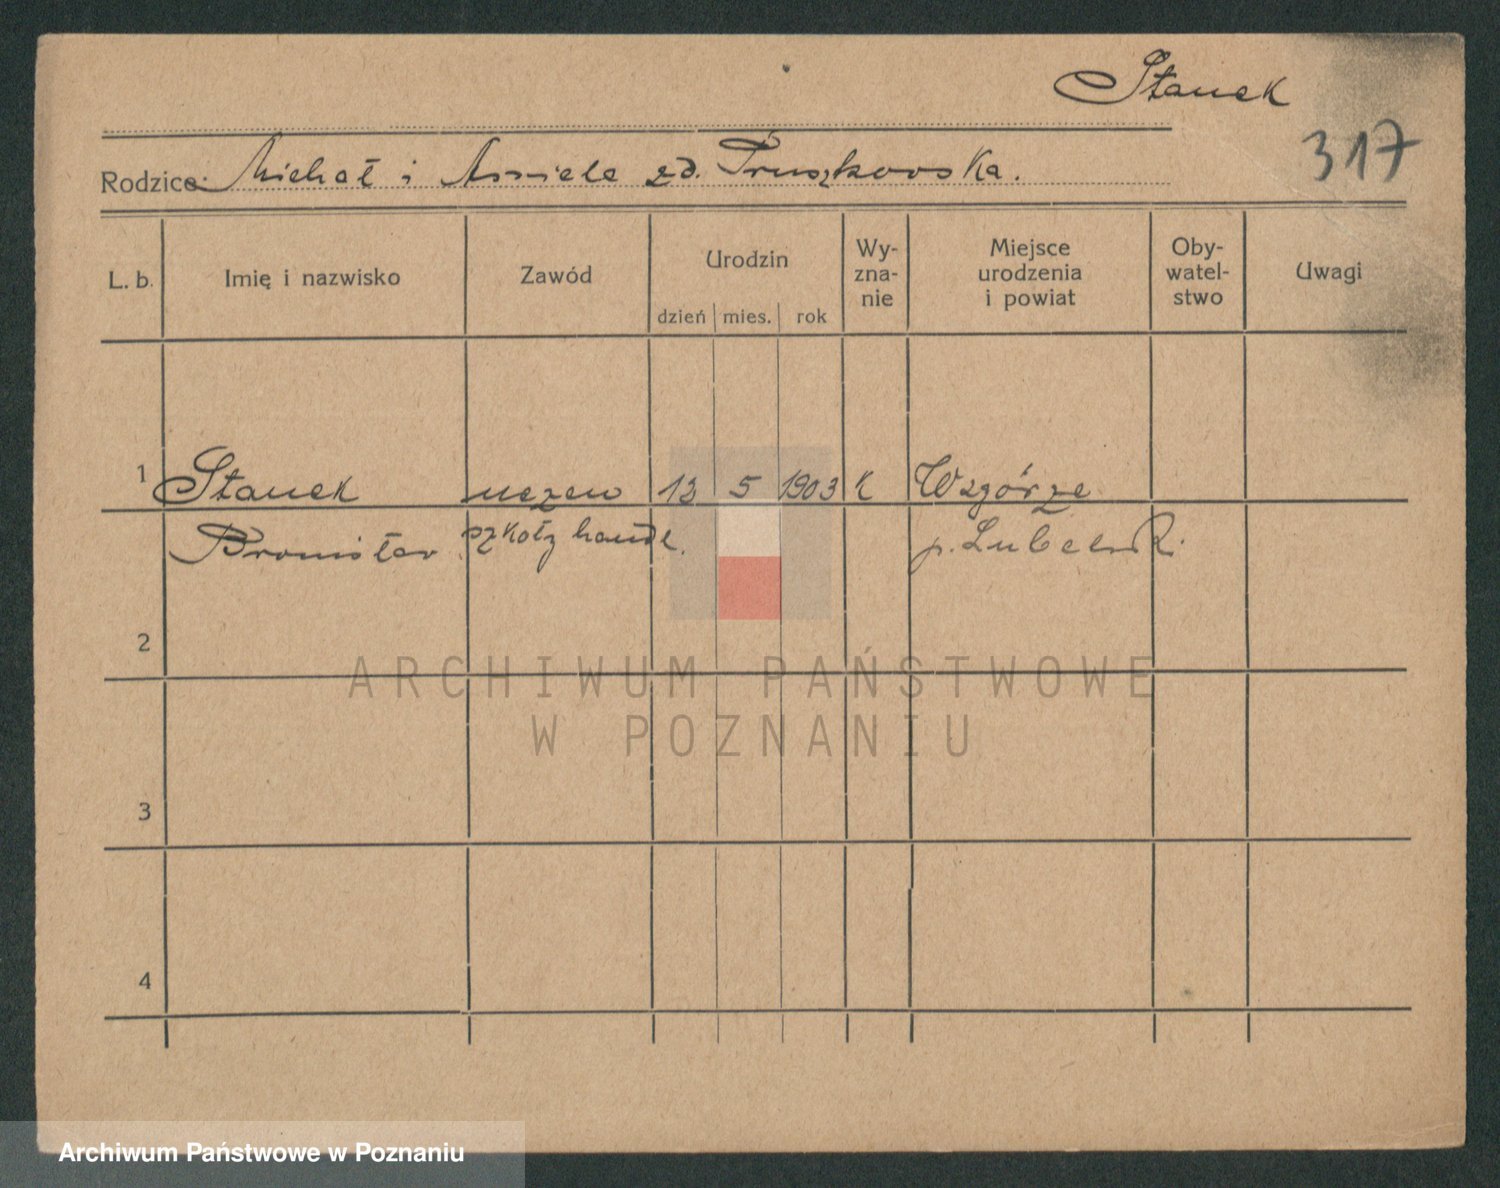 Stanek
317
Rodzice: Michał i Aniela zd. Pruszkowska.
L. b. Imię i nazwisko Zawód Urodzin dzień mies. rok Wy-zna-nie Miejsce urodzenia i powiat Oby-watel-stwo Uwagi
1 Stanek uczeń 12 5 1903 k Wzgórze
Bronisław szkoły handl. p. Lubelsk.
2
ARCHIWUM PAŃSTWOWE
W POZNANIU
3
4
Archiwum Państwowe w Poznaniu